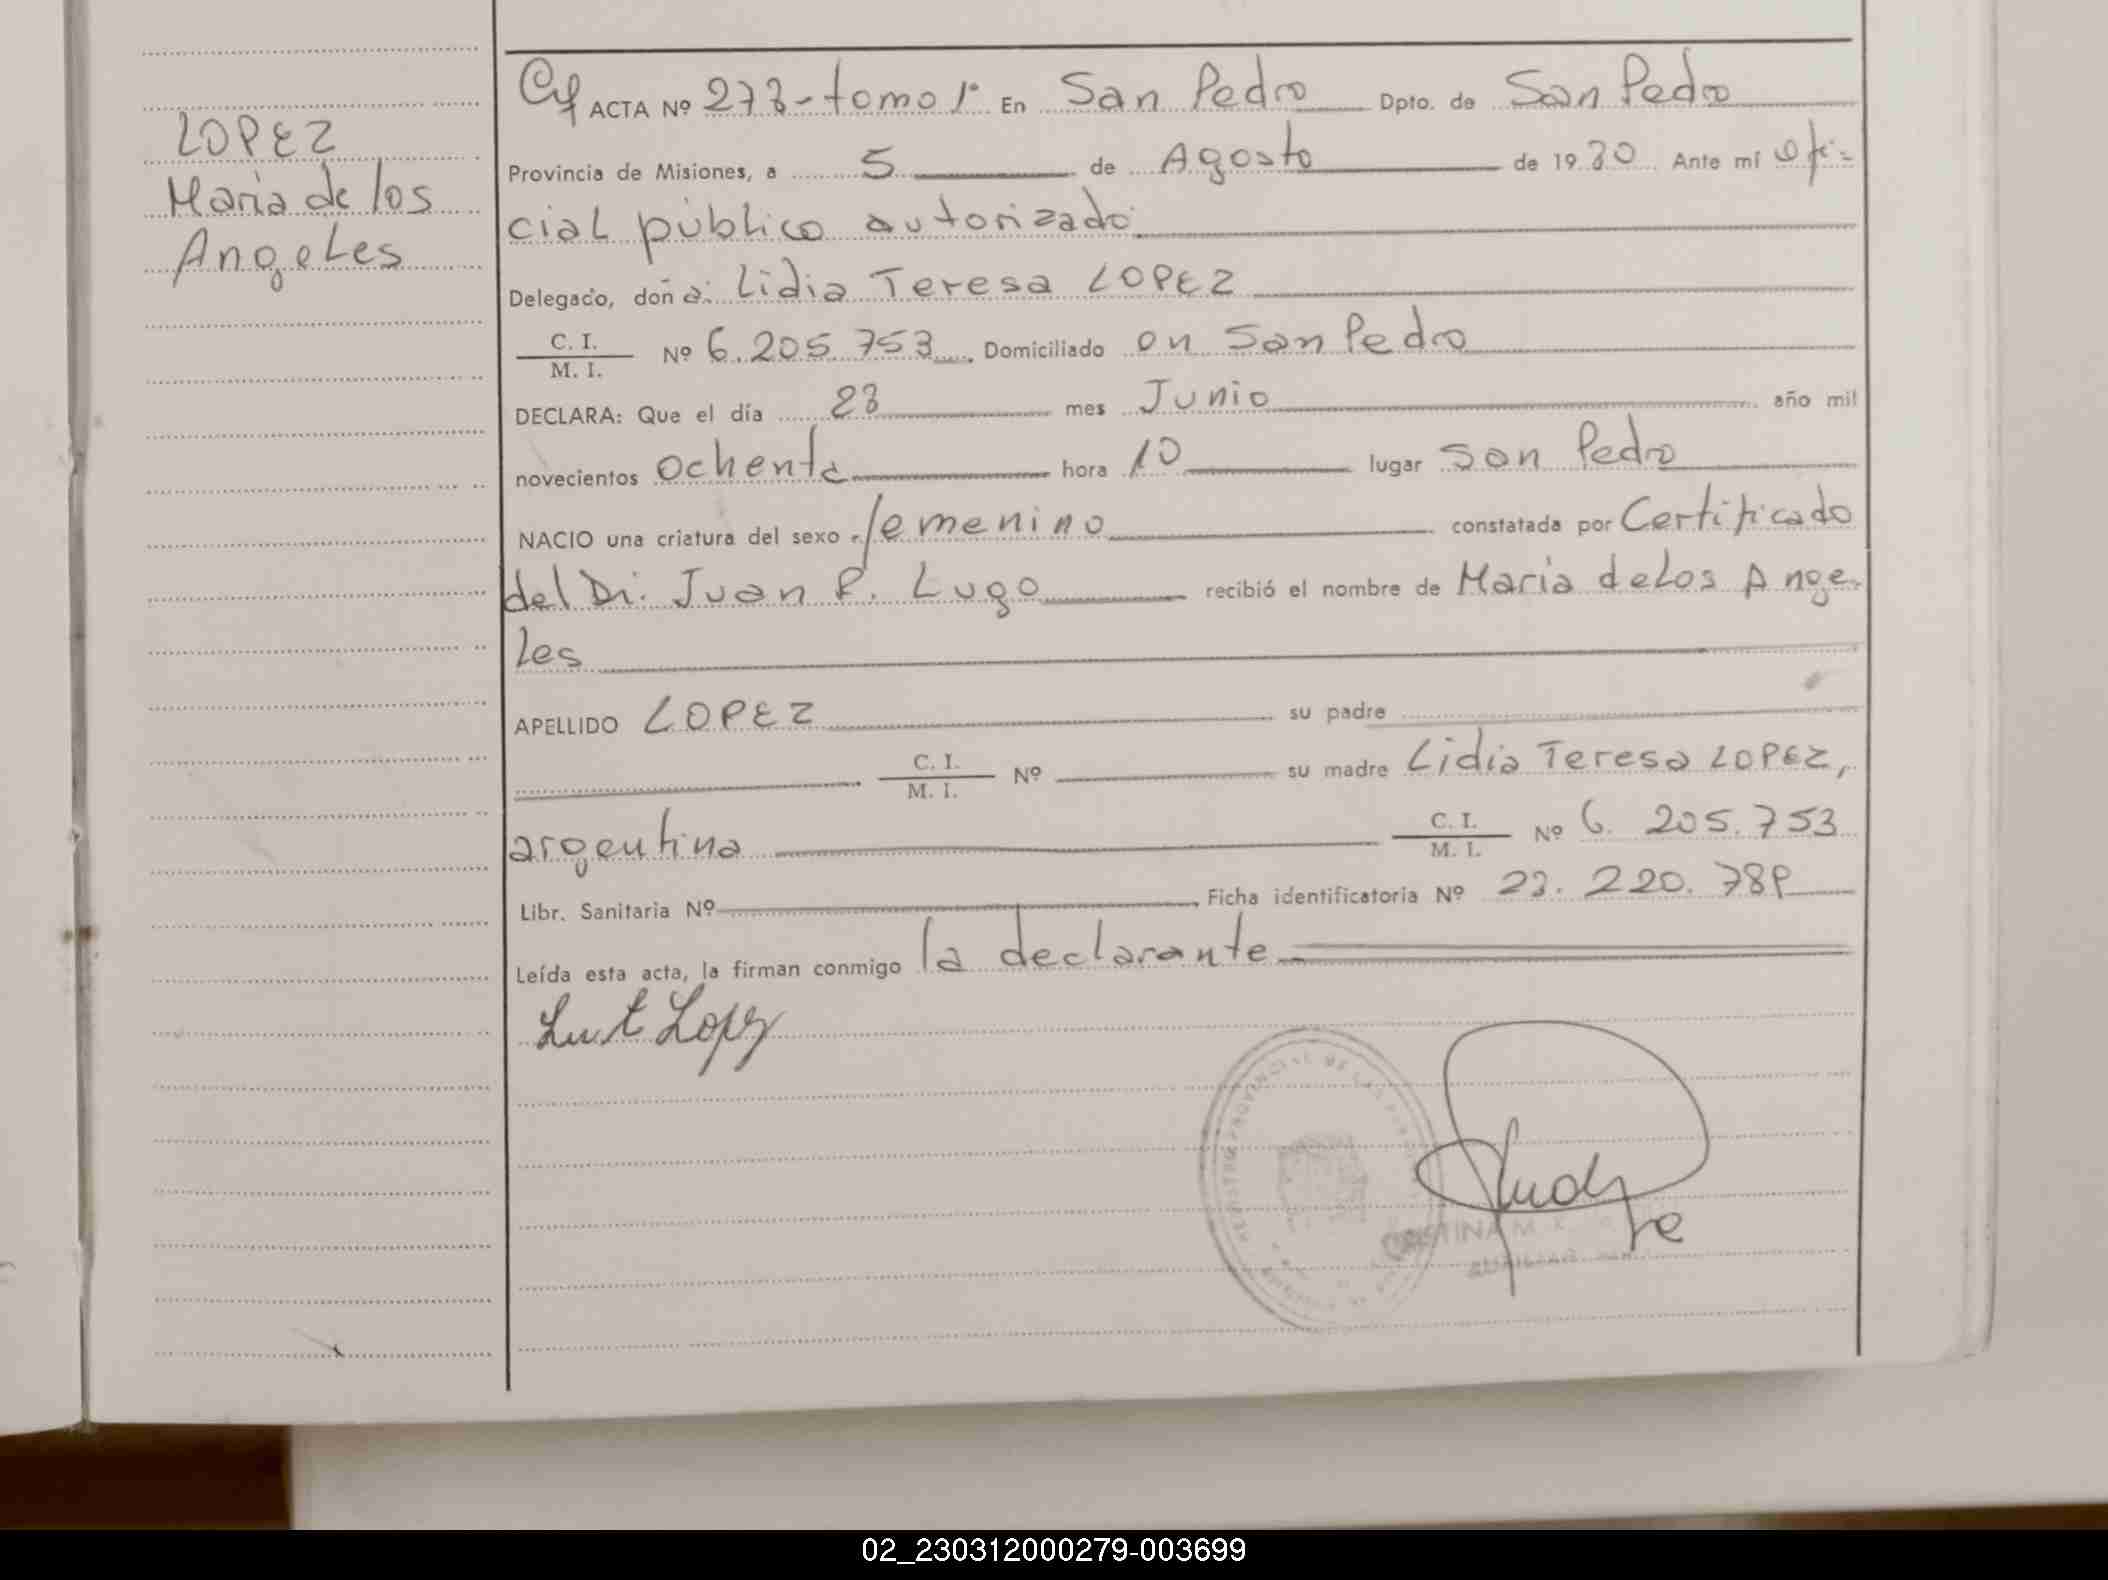 LOPEZ
Maria de los
Angeles
ACTA Nº 273-tomo 1º En San Pedro Dpto. de San Pedro
Provincia de Misiones, a 5 de Agosto de 1980 Ante mí ofi-
cial público autorizado
Delegado, doña: Lidia Teresa LOPEZ
C. I.
M. I. Nº 6.205.753 Domiciliado en San Pedro
DECLARA: Que el día 23 mes Junio año mil
novecientos ochenta hora 10 lugar San Pedro
NACIO una criatura del sexo femenino constatada por Certificado
del Dr. Juan P. Lugo recibió el nombre de Maria de Los Ange-
les
APELLIDO LOPEZ su padre
C. I.
M. I. Nº su madre Lidia Teresa LOPEZ,
argentina C. I.
M. I. Nº 6.205.753
Libr. Sanitaria Nº Ficha identificatoria Nº 23.220.789
Leída esta acta, la firman conmigo la declarante
Lopez
REGISTRO PROVINCIAL DE LAS
02_230312000279-003699